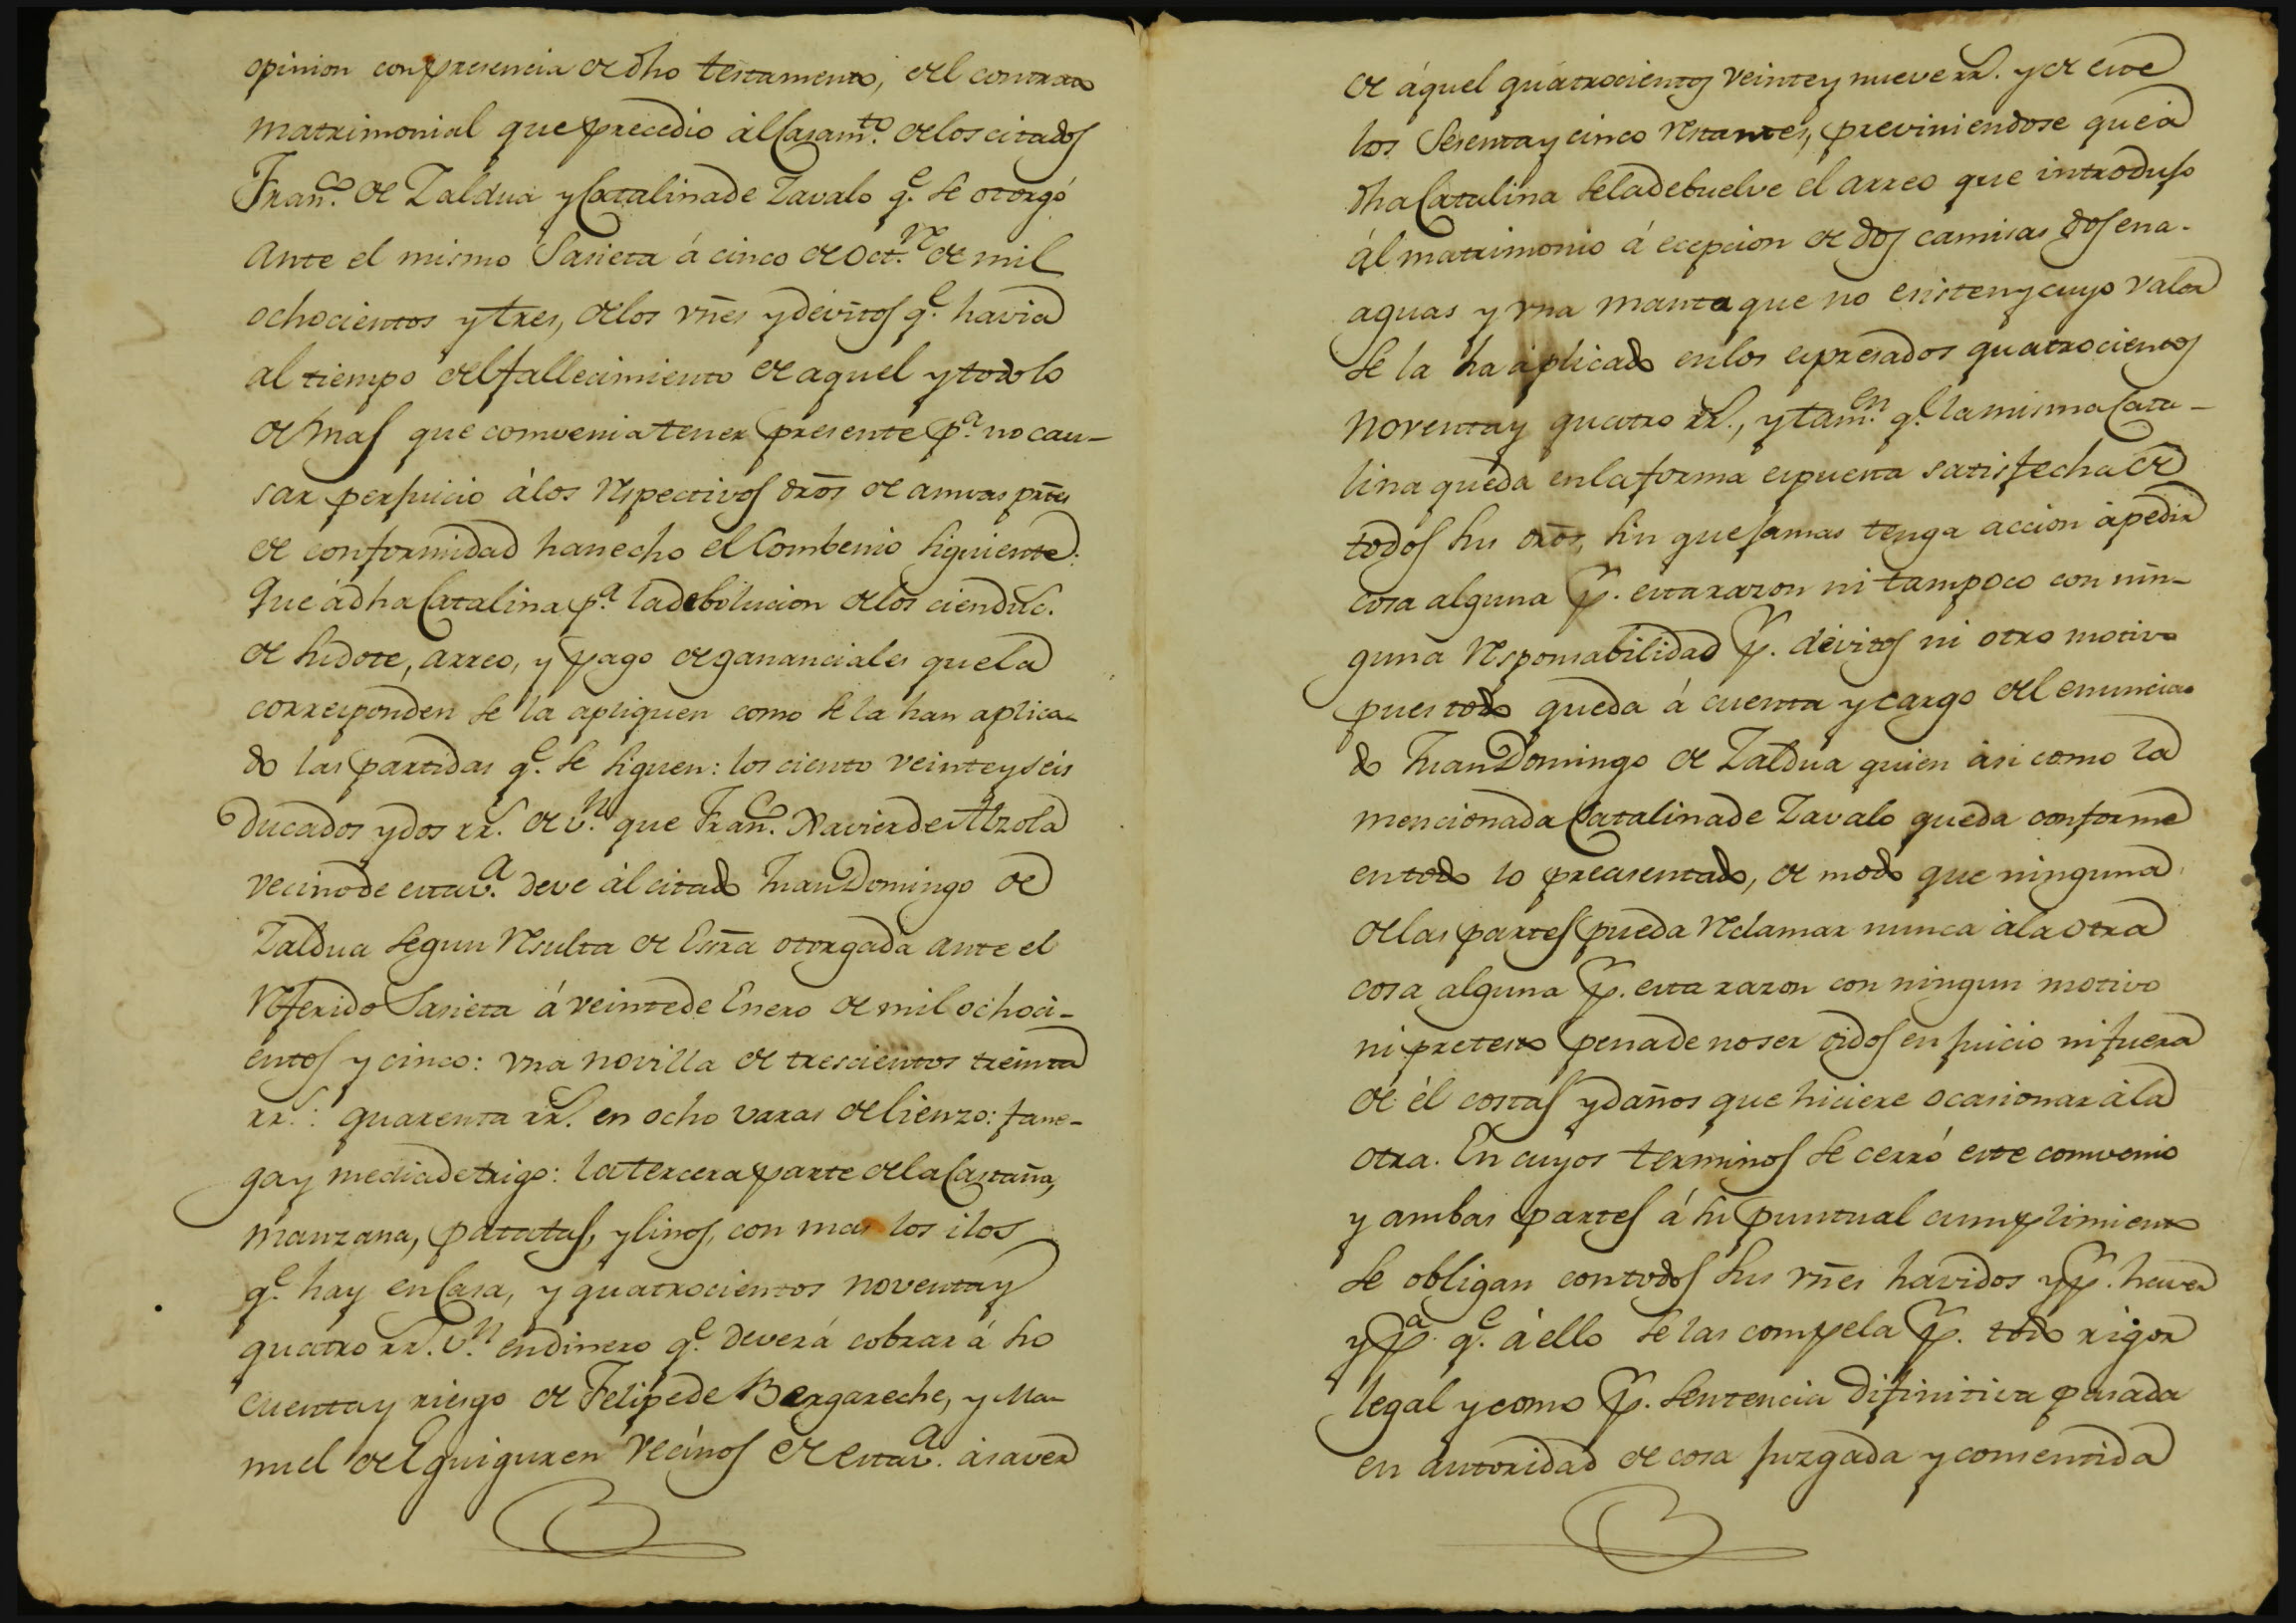 opinion con presencia de dho testamento, del contrato
matrimonial que precedio ál Casam.to de los citados
Fran.co de Zaldua y Catalina de Zavalo q.e se otorgó
ante el mismo Sasieta á cinco de Oct.re de mil
ochocientos y tres, de los vñes y devitos q.e havia
al tiempo del fallecimiento de aquel y todo lo
demas que combenia tener presente p.a no cau-
sar perjuicio álos respectivos drõs de amvas prtẽs
de conformidad han echo el Combenio siguiente:
Que ádha Catalina p.a la debolucion de los cien duc.
de su dote, arreo, y pago de gananciales que la
corresponden se la apliquen como se la han aplica-
do las partidas q.e se siguen: los ciento veinte y seis
ducados y dos rr.s de v.n que Fran.co Xavier de Alzola
vecino de esta v.a deve ál citado Juan Domingo de
Zaldua segun resulta de Esrña otorgada ante el
referido Sasieta á veinte de Enero de mil ochoci-
entos y cinco: vna novilla de trescientos treinta
rr.s: quarenta rr.s en ocho varas de lienzo: fane-
ga y media de trigo: la tercera parte de la Castaña,
manzana, patatas, y linos, con mas los ilos
q.e hay en Casa, y quatrocientos noventa y
quatro rr.s v.n en dinero q.e deverá cobrar á su
cuenta y riesgo de Felipe de Bergareche, y Ma-
nuel de Eguiguren vecinos de esta v.a ásaver
de áquel quatrocientos veinte y nueve rr.s y de este
los sesenta y cinco restantes, previniendose que á
dha Catalina se la debuelve el arreo que introdujo
ál matrimonio á ecepcion de dos camisas dos ena-
aguas y vna manta que no esisten y cuyo valor
se la ha áplicado en los espresados quatrocientos
noventa y quatro rr.s, y tam.en q.e la misma Cata-
lina queda en la forma espuesta satisfecha de
todos sus drõs, sin que jamas tenga accion ápedir
cosa alguna p.r esta razon ni tampoco con nin-
guna responsabilidad p.r dévitos ni otro motivo
pues todo queda á cuenta y cargo del enuncia-
do Juan Domingo de Zaldua quien ási como la
mencionada Catalina de Zavalo queda conforme
en todo lo preasentado, de modo que ninguna
de las partes pueda reclamar nunca ála otra
cosa alguna p.r esta razon con ningun motivo
ni pretesto pena de no ser oidos en juicio ni fuera
de él costas y daños que hiciere ocasionar ála
otra. En cuyos terminos se cerró este comvenio
y ambas partes á su puntual cumplimiento
se obligan con todos sus vñes havidos y p.r haver
y p.a q.e áello se las compela p.r todo rigor
legal y como p.r sentencia difinitiva pasada
en autoridad de cosa juzgada y consentida